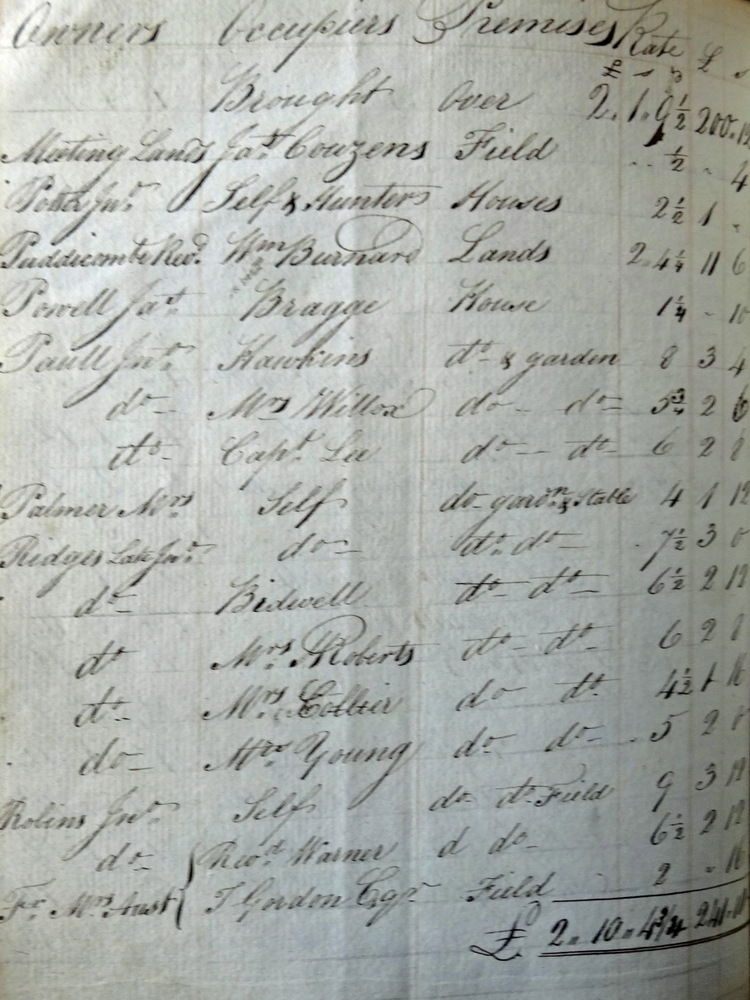 Owners Occupiers Premises Rate £ s
Brought Over 2 " 1 " 9 1/2 200 "
Meeting Lands Jas. Couzens Field 1/2 4
Jnr. Self & Hunters Houses 2 1/2 1
Puddicombe Revd. Wm Burnard Lands 2 " 4 1/4 11 6
Powell Jas. Bragge House 1 1/4 - 10
Paull Jno. Hawkins do & garden 8 3 4
do Mrs Willox do do 5 3/4 2 6
do Capt. Lee do do 6 2 8
Palmer Mrs Self do gardn. & Stable 4 1 12
Ridges Late Jno. do do do 7 1/2 3 0
do Bidwell do do 6 1/2 2 12
do Mrs Roberts do do 6 2 8
do Mrs. Collier do do 4 1/2 1 16
do Mrs Young do do 5 2 0
Robins Jno. Self do do Field 9 3 12
do Revd Warner d do 6 1/2 2 12
Mrs Aust T Gordon Esqr Field 2 - 16
£ 2 " 10 " 4 3/4 241 "